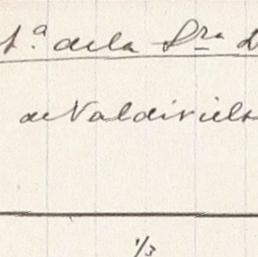 t.ª de la Sra D
de Valdiviels
1/3